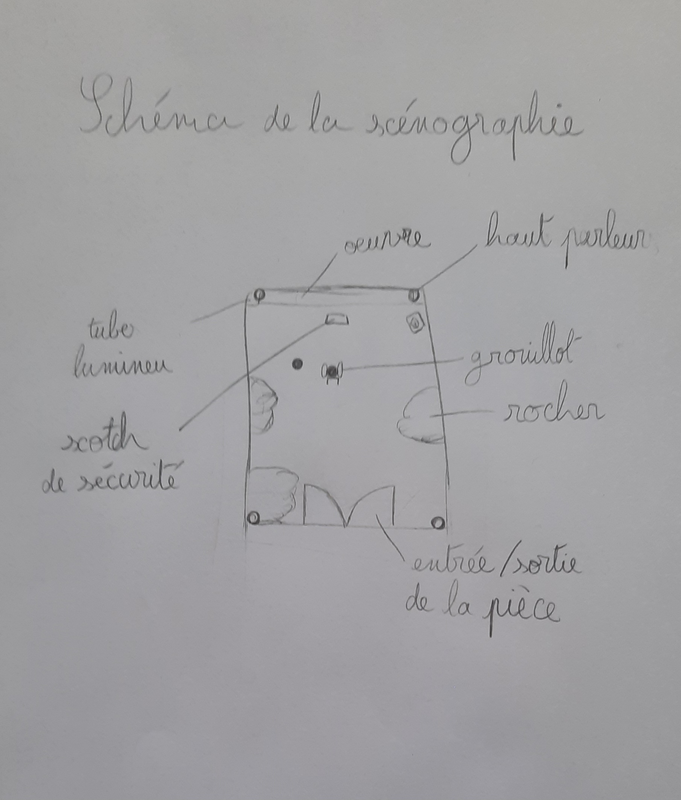 Schéma de la scénographie
oeuvre
haut parleur
tube
lumineu
grouillot
rocher
scotch
de sécurité
entrée/sortie
de la pièce